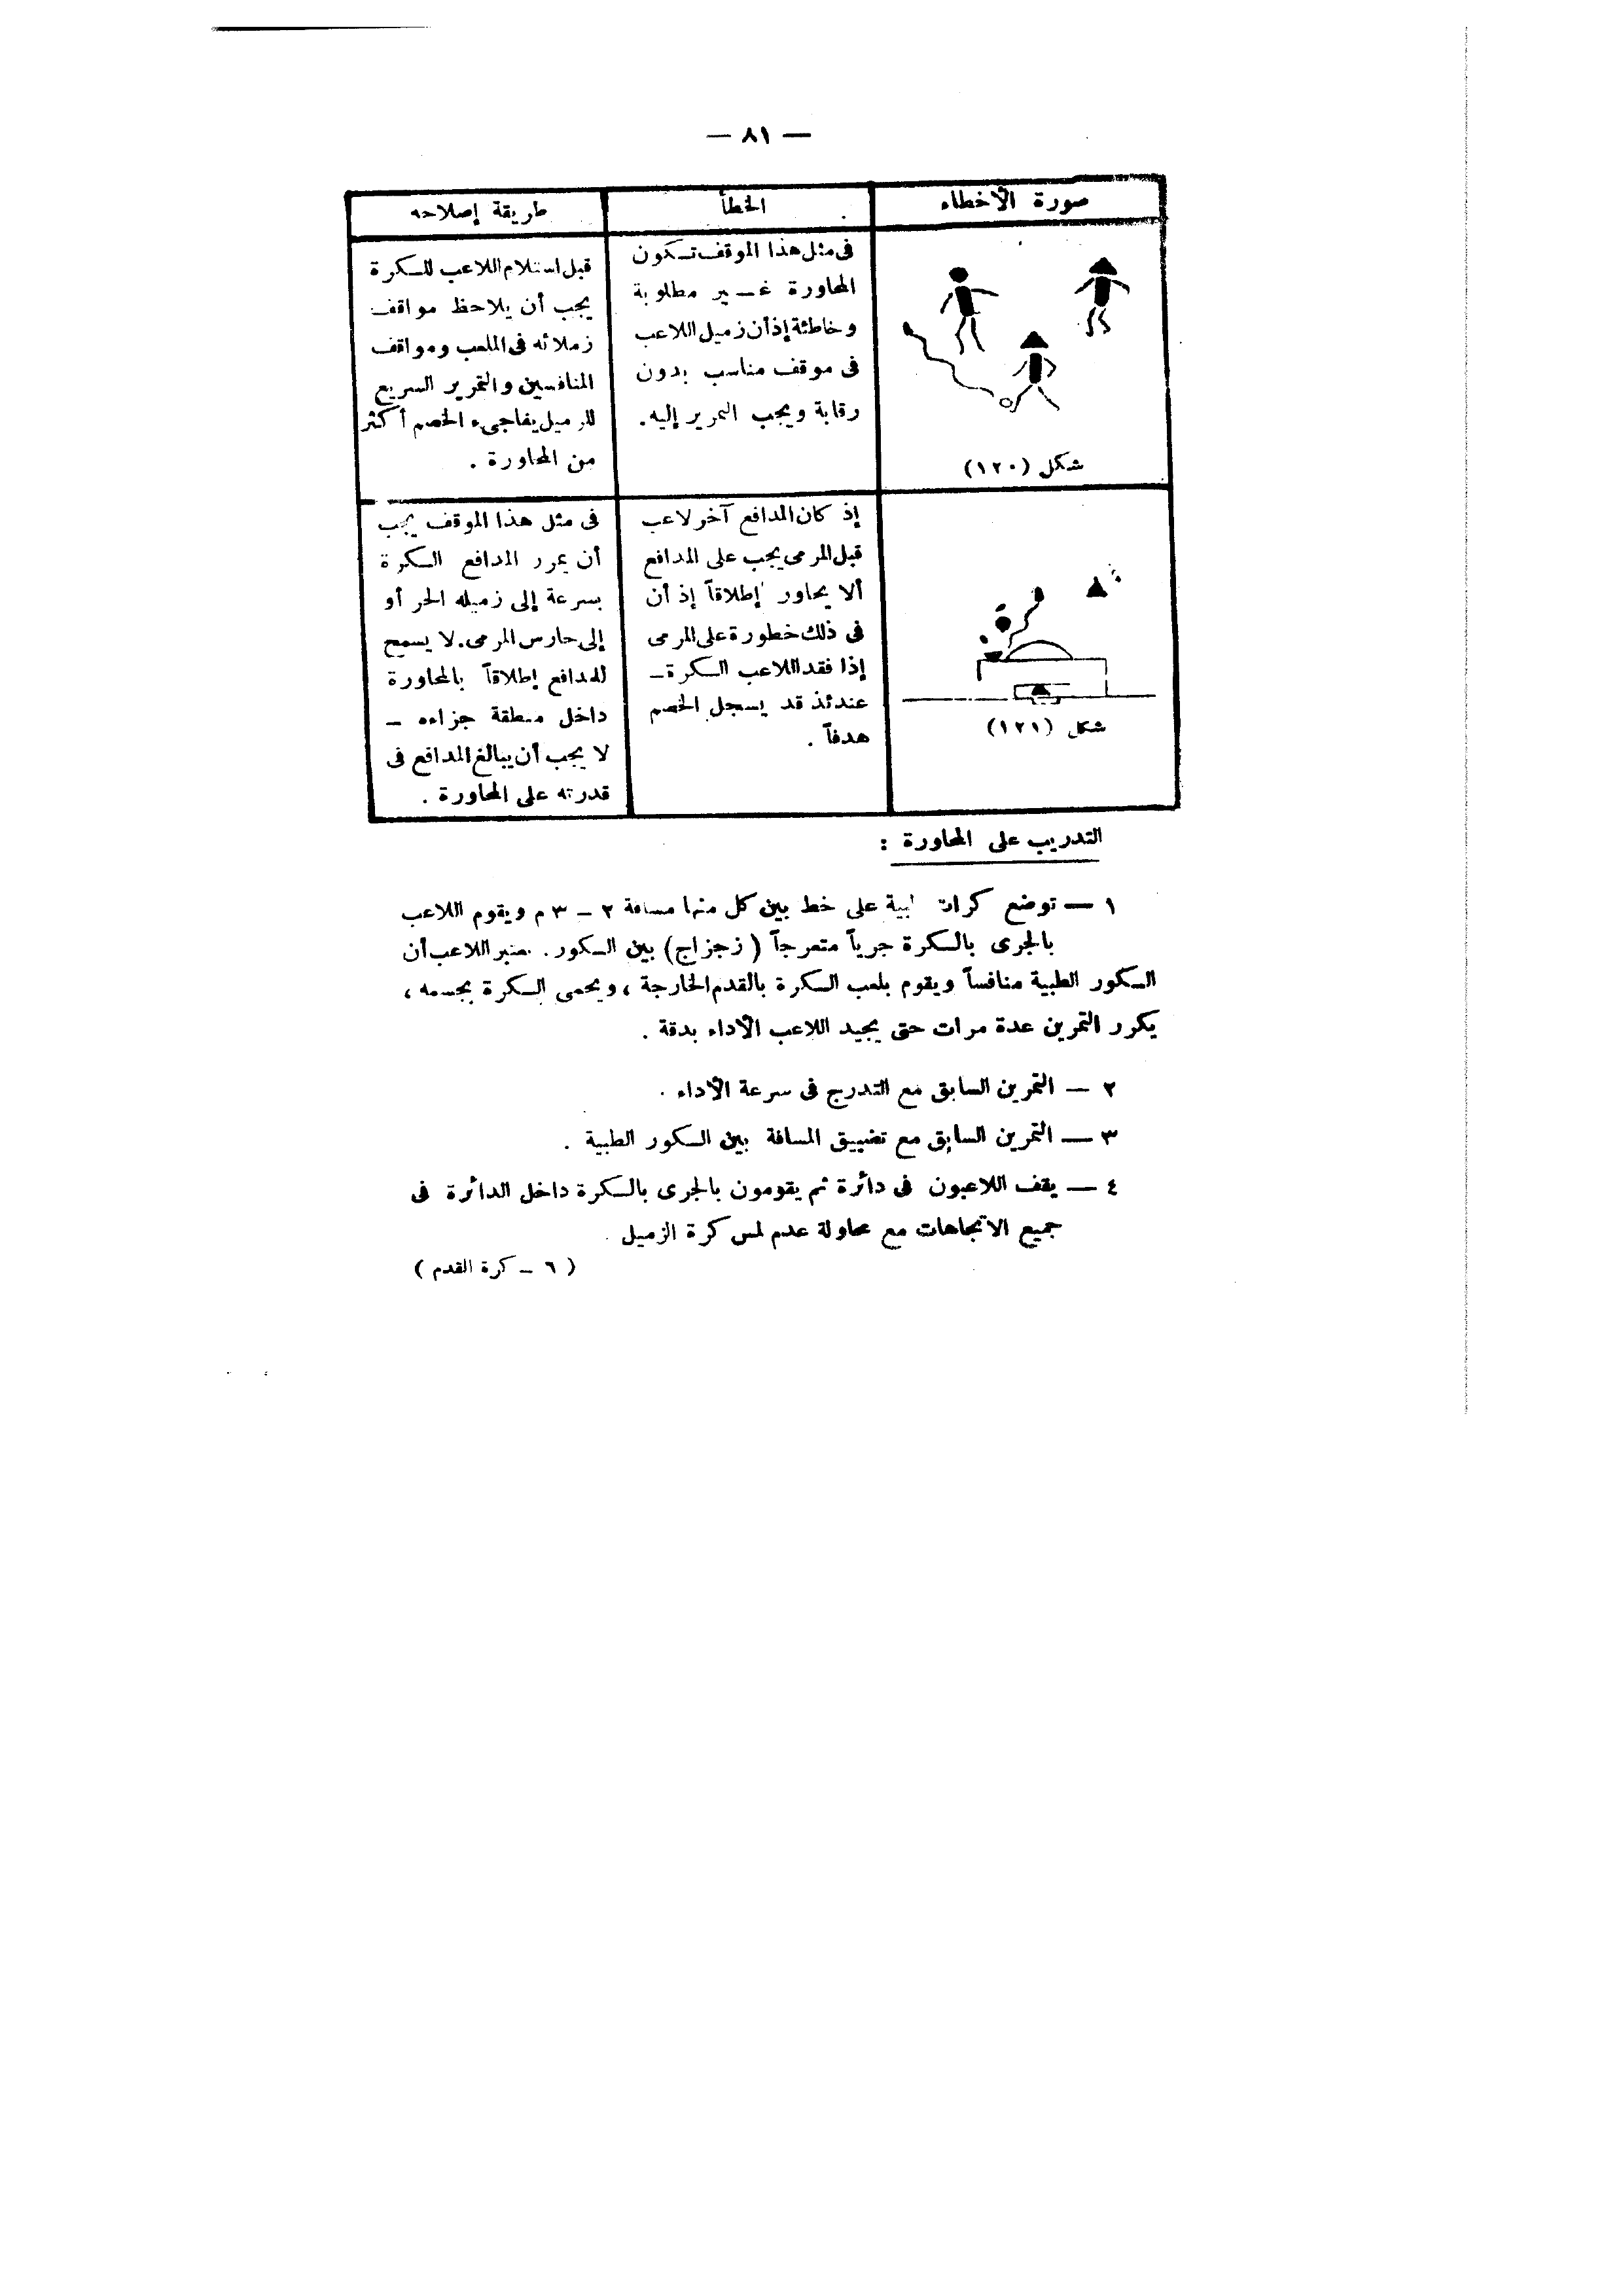 — ٨١ —
صورة الأخطاء
الخطأ
طريقة إصلاحه
شكل (١٢٠)
فى مثل هذا الموقف تكون
المحاورة غير مطلوبة
وخاطئة إذ أن زميل اللاعب
فى موقف مناسب بدون
رقابة ويجب التمرير إليه .
قبل استلام اللاعب للكرة
يجب أن يلاحظ مواقف
زملائه فى الملعب ومواقف
المنافسين والتمرير السريع
للزميل يفاجىء الخصم أكثر
من المحاورة .
شكل (١٢١)
إذ كان المدافع آخر لاعب
قبل المرمى يجب على المدافع
ألا يحاور إطلاقاً إذ أن
فى ذلك خطورة على المرمى
إذا فقد اللاعب الكرة –
عندئذ قد يسجل الخصم
هدفاً .
فى مثل هذا الموقف يجب
أن يمرر المدافع الكرة
بسرعة إلى زميله الحر أو
إلى حارس المرمى. لا يسمح
للمدافع إطلاقاً بالمحاورة
داخل منطقة جزاءه –
لا يجب أن يبالغ المدافع فى
قدرته على المحاورة .
التدريب على المحاورة :
١ — توضع كرات طبية على خط بين كل منها مسافة ٢ – ٣ م ويقوم اللاعب
بالجرى بالكرة جرياً متعرجاً ( زجزاج ) بين الكور . يعتبر اللاعب أن
الكور الطبية منافساً ويقوم بلعب الكرة بالقدم الخارجة ، ويحمى الكرة بجسمه ،
يكرر التمرين عدة مرات حتى يجيد اللاعب الأداء بدقة .
٢ — التمرين السابق مع التدرج فى سرعة الأداء .
٣ — التمرين السابق مع تضييق المسافة بين الكور الطبية .
٤ — يقف اللاعبون فى دائرة ثم يقومون بالجرى بالكرة داخل الدائرة فى
جميع الاتجاهات مع محاولة عدم لمس كرة الزميل .
( ٦ – كرة القدم )